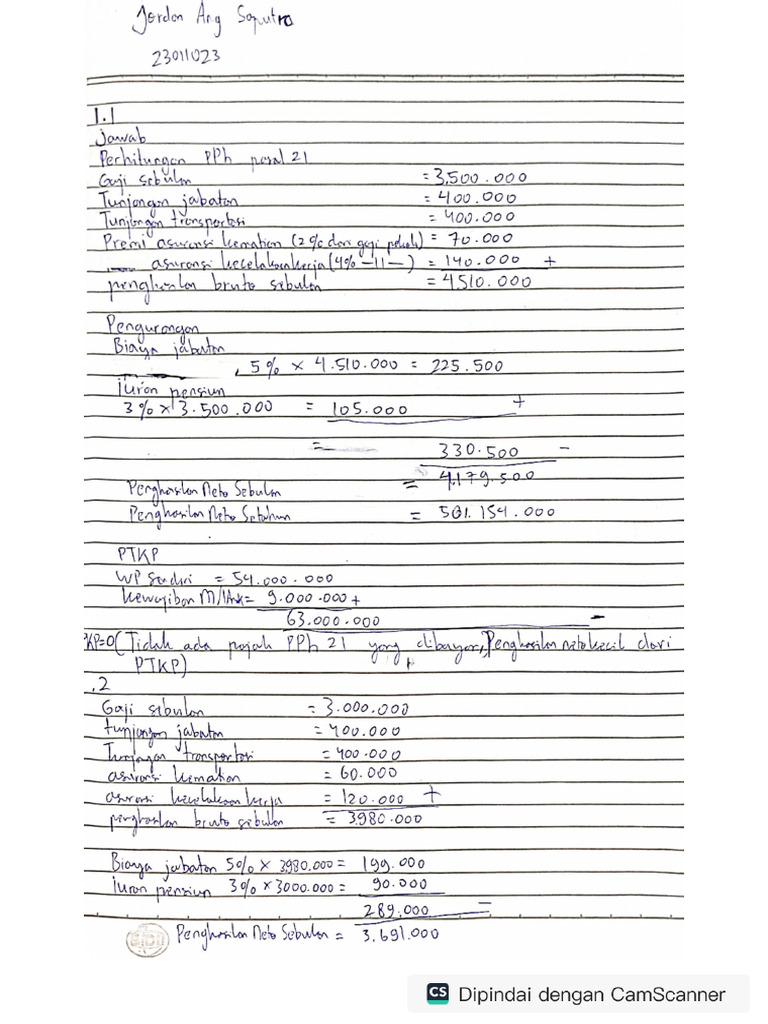 Jordan Ang Saputra
23011023
1.1
Jawab
Perhitungan PPh pasal 21
Gaji sebulan = 3.500.000
Tunjangan jabatan = 400.000
Tunjangan transportasi = 400.000
Premi asuransi kematian (2% dari gaji pokok) = 70.000
asuransi kecelakaan kerja (4% -11-) = 140.000 +
penghasilan bruto sebulan = 4510.000
Pengurangan
Biaya jabatan
5% × 4.510.000 = 225.500
Iuran pensiun
3% × 3.500.000 = 105.000 +
= 330.500 -
Penghasilan Neto Sebulan = 4.179.500
Penghasilan Neto Setahun = 501.154.000
PTKP
WP Sendiri = 54.000.000
kewajiban M/1Ank = 9.000.000 +
63.000.000 -
KP=0 (Tidak ada pajak PPh 21 yang dibayar, Penghasilan neto kecil dari
PTKP)
.2
Gaji sebulan = 3.000.000
tunjangan jabatan = 400.000
Tunjangan transportasi = 400.000
asuransi kematian = 60.000
asuransi kecelakaan kerja = 120.000 +
penghasilan bruto sebulan = 3.980.000
Biaya jabatan 5% × 3.980.000 = 199.000
Iuran pensiun 3% × 3000.000 = 90.000
289.000 =
Penghasilan Neto Sebulan = 3.691.000
CS Dipindai dengan CamScanner